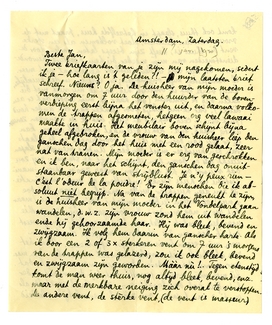 Amsterdam, Zaterdag.
11 Jan. 1902
Beste Jan,
Twee briefkaarten van je zijn mij nagekomen, sedert
ik je – hoe lang is 't geleden?! – mijn laatsten brief
schreef. Nieuws? O ja. De huisheer van mijn moeder is
vanmorgen om 7 uur door den huurder van de boven-
verdieping eerst bijna het venster uit, en daarna volko-
men de trappen afgesmeten, hetgeen erg veel lawaai
maakte in huis. Het meubilair boven schijnt bijna
geheel afgebroken, en de vrouw van den huisheer liep den
ganschen dag door het huis met een rood gelaat, zeer
nat van tranen. Mijn moeder is er erg van geschrokken
en ik ben, naar het schijnt, den ganschen dag onuit-
staanbaar geweest van strijdlust. Ja n'y peux rien –
c'est l'odeur de la poudre! Er zijn menschen, die ik ab-
soluut niet begrijp. Na van de trappen gesmeten te zijn
is de huisheer van mijn moeder in het Vondelpark gaan
wandelen, d.w.z. zijn vrouw zond hem uit wandelen
en hij gehoorzaamde haar. Hij was bleek, bevend en
zwijgzaam. Ik volg hem daarin van ganscher harte. Als
ik door een 2 of 3 x sterkeren vent om 7 uur 's morgens
van de trappen was gelazerd, zou ik ook bleek, bevend
en zwijgzaam zijn geworden. Máár nu!. Tegen etenstijd
komt de man weer thuis, nog altijd bleek, bevend, en
maar met de merkbare neiging zich overal te verstoppen.
De andere vent, de sterke vent, (de vent is masseur)